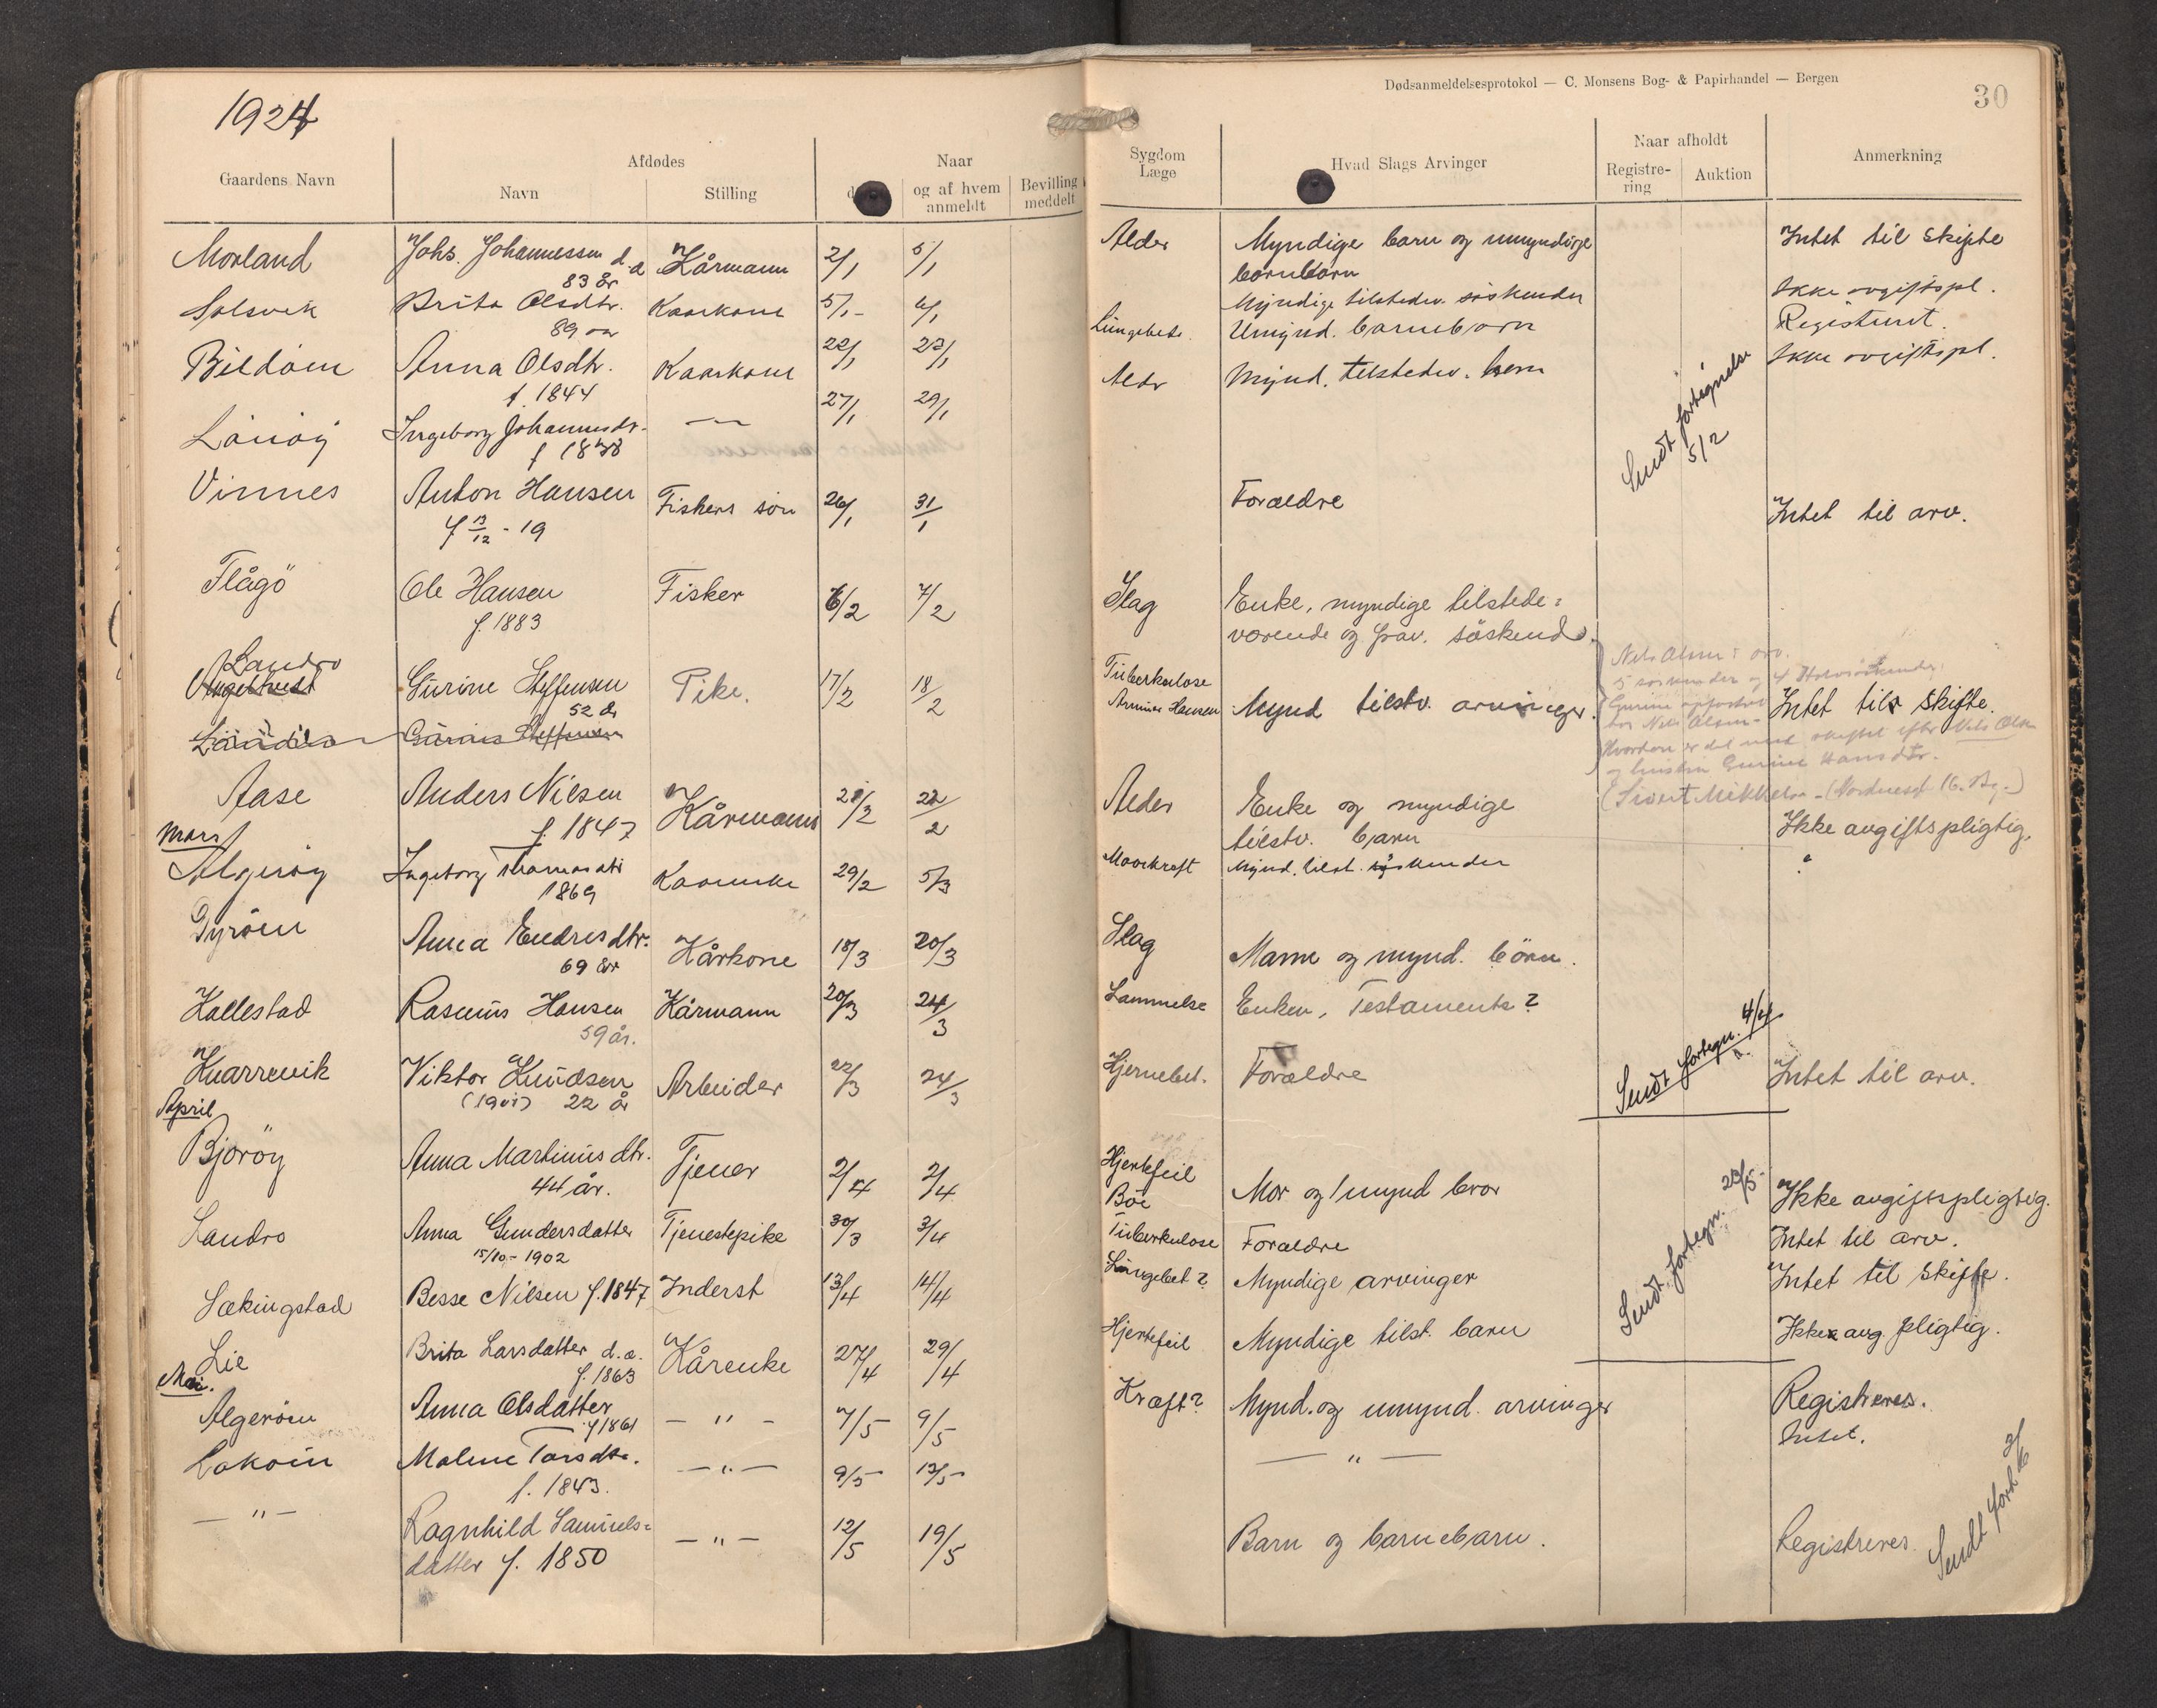 1924
Dødsanmeldelsesprotokol — C. Monsens Bog- & Papirhandel — Bergen
30
Gaardens Navn
Afdødes
Navn
Stilling
Naar
og af hvem anmeldt
Bevilling meddelt
Sygdom Læge
Hvad Slags Arvinger
Naar afholdt
Registre-ring
Auktion
Anmerkning
Morland Johs. Johannessen d.a Kårmann 2/1 5/1 Alder Myndige barn og umyndige Intet til skifte
83 år barnebarn
Solsvik Brita Olsdtr. Kaarkone 5/1 6/1 Myndige tilstedev. søskender Ikke avgiftspl.
89 aar
Bildöin Anna Olsdtr. Kaarkone 22/1 23/1 Lungebet. Umynd. barnebarn Registreret.
f. 1844
Lönöy Ingeborg Johannesdr. — 27/1 29/1 Aldr Mynd. tilstedev. barn Ikke avgiftspl.
f 1838
Sendt fortegnelse 5/2
Vinnes Anton Hansen Fiskers sön 26/1 31/1 Forældre Intet til arv.
f 13/12 - 19
Flågö Ole Hansen Fisker 6/2 7/2 Slag Enke, myndige tilstede=
f. 1883 værende og frav. söskend
Landro
Gurine Steffensen Pike. 17/2 18/2 Tuberkulose Mynd tilstv. arvinger. Intet til skifte.
52 år Hansen
Nils Olsen
5 søskender og 4 Halvsøskender
Gurine
hos Nils Olsen
Hvordan er det med skiftet efter Nils Olsen
og hustru Gurine Hansdtr.
(Sivert Mikkelsen - (Nordnesgt 16. Bg.)
Gurine Steffensen
Aase Anders Nilsen Kårmann 21/2 22/2 Alder Enke og myndige Ikke avgiftspligtig.
f. 1847 tilstv. barn
Mars
Algeröy Ingeborg Thomasdtr Kaarenke 29/2 5/3 Mavekraft Mynd. tilst. søskender "
1869
Tyröin Anna Endresdtr. Kårkone 18/3 20/3 Slag Mann og mynd. börn.
69 år
Kallestad Rasmus Hansen Kårmann 20/3 24/3 Lammelse Enken, Testamente?
59 år.
Sendt fortegn. 4/4
Knarrevik Viktor Knudsen Arbeider 22/3 24/3 Hjernebet. Forældre Intet til arv.
(1901) 22 år
April
Björöy Anna Martinusdtr. Tjener 2/4 2/4 Hjertefeil Mor og 1 mynd bror Ikke avgiftspligtig.
44 år. Böe
Landro Anna Gundersdatter Tjenestepike 30/3 3/4 Tuberkulose Forældre Intet til arv.
15/10 - 1902
Sækingstad Besse Nilsen f. 1847 Inderst 13/4 14/4 Lungebet? Myndige arvinger Intet til skifte.
Sendt fortegn. 23/5
Lie Brita Larsdatter d.a. Kårenke 27/4 29/4 Hjertefeil Myndige tilst. barn Ikke avg. pligtig.
f. 1863
Mai.
Algeröin Anna Olsdatter — " — 7/5 9/5 Kraft? Mynd. og umynd. arvinger Registreres.
f 1861
Lokøin Malene Torsdtr. — " — 9/5 13/5 — " — Intet.
f. 1843.
— " — Ragnhild Samuels= — " — 12/5 19/5 Barn og barnebarn. Registreres.
datter f. 1850
Sendt fort 2/6